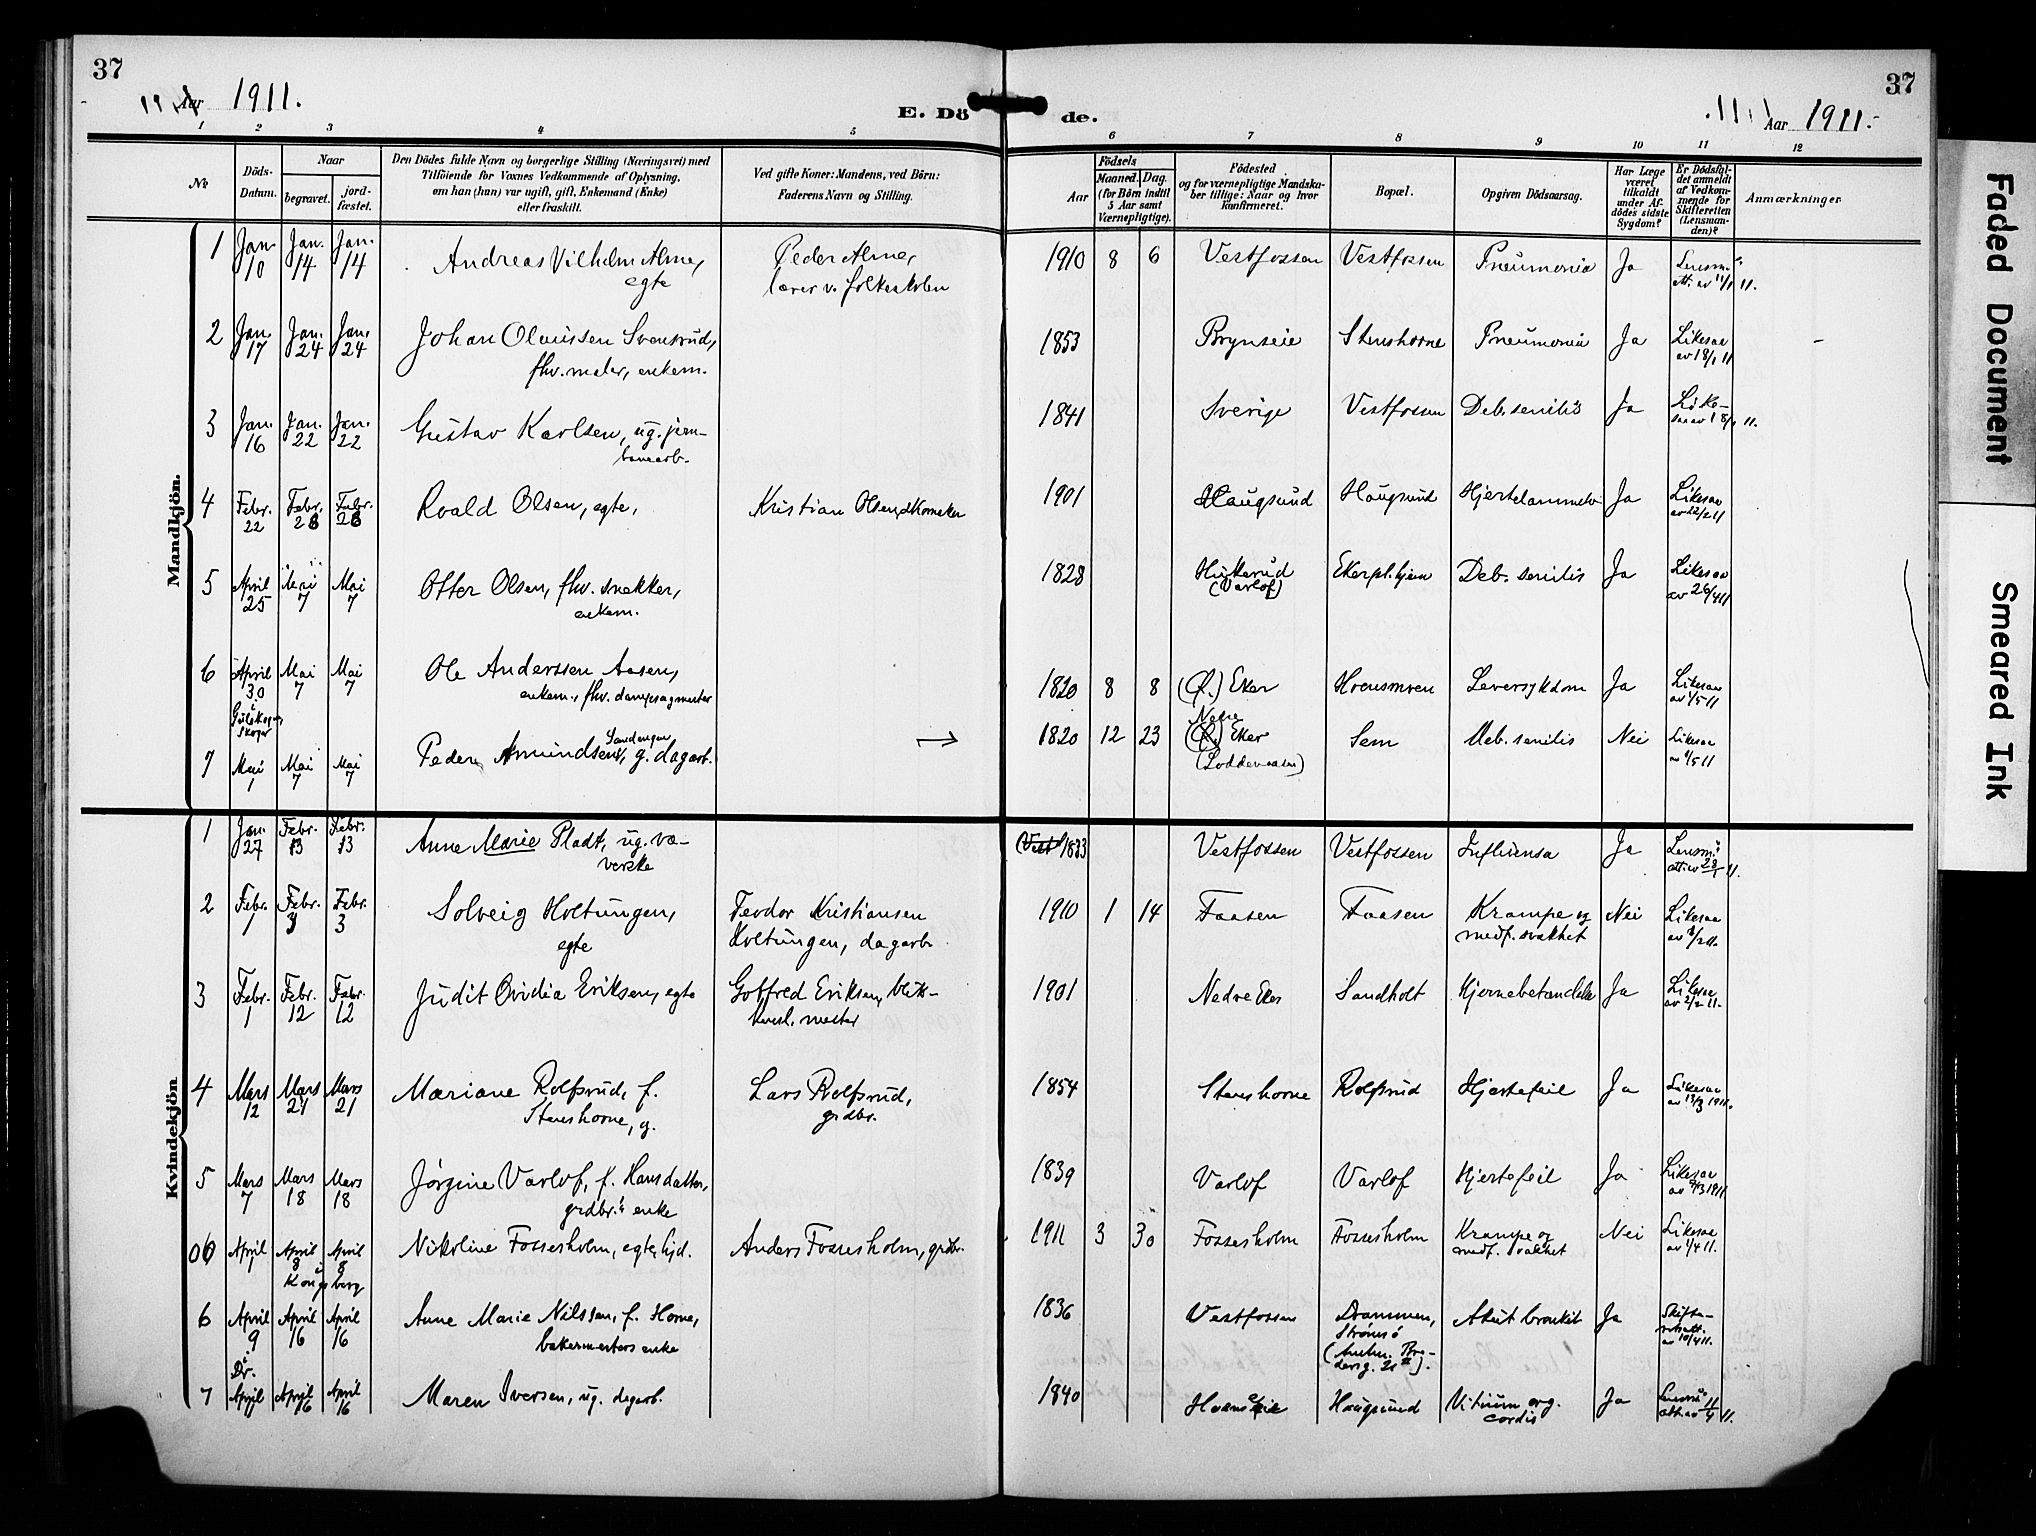 37
37
Aar 1911.
E. Döde.
Aar 1911.
1 2 3 4 5 6 7 8 9 10 11 12
№
Döds-Datum.
Naar
begravet.
jord-fæstet.
Den Dödes fulde Navn og borgerlige Stilling (Næringsvei) med
Tilföiende for Voxnes Vedkommende af Oplysning,
om han (hun) var ugift, gift, Enkemand (Enke)
eller fraskilt.
Ved gifte Koner: Mandens, ved Börn:
Faderens Navn og Stilling.
Födsels
Aar
Maaned. Dag.
(for Börn indtil
5 Aar samt
Værnepligtige).
Födested
og for værnepligtige Mandska-
ber tillige: Naar og hvor
konfirmeret.
Bopæl.
Opgiven Dödsaarsag.
Har Læge
været
tilkaldt
under Af-
dödes sidste
Sygdom?
Er Dödsfal-
det anmeldt
af Vedkom-
mende for
Skifteretten
(Lensman-
den)?
Anmærkninger
Mandkjön.
1 Jan. 10 Jan. 14 Jan. 14 Andreas Vilhelm Alme, Peder Alme, 1910 8 6 Vestfossen Vestfossen Pneumonia Ja Lensm.
egte lærer v. folkeskolen att. av 11/1 11.
2 Jan. 17 Jan. 24 Jan. 24 Johan Olaussen Svensrud, 1853 Brynseie Stenshorne Pneumonia Ja Likesaa
fhv. maler, enkem. av 18/1 11
3 Jan. 16 Jan. 22 Jan. 22 Gustav Karlsen, ug. jern- 1841 Sverige Vestfossen Deb. senilis Ja Like-
banearb. saa av 18/1 11.
4 Febr. 22 Febr. 28 Febr. 28 Roald Olsen, egte, Kristian Olsen, skomaker 1901 Haugsund Haugsund Ja Likesaa
av 22/2 11
5 April 25 Mai 7 Mai 7 Otter Olsen, fhv. snekker, 1828 Hukerud Eker pl.hjem Deb. senilis Ja Likesaa
enkem. (Varlof) av 26/4 11
6 April 30 Mai 7 Mai 7 Ole Anderssen Aasen, 1820 8 8 (Ø.) Eker Ja Likesaa
i Gulskogen, Skoger enkem., fhv. dampsagmester Leversykdom av 1/5 11
7 Mai 1 Mai 7 Mai 7 Peder Amundsen Sandengen, g. dagarb. → 1820 12 23 Nedre Eker Sem Deb. senilis Nei Likesaa
(Loddenaasen)
Kvindekjön
1 Jan. 27 Febr. 13 Febr. 13 Anne Marie Pladt, ug. væ- (Vest 1833 Vestfossen Vestfossen Influensa Ja Lensm.
verske att. av 28/1 11.
2 Febr. 1 Febr. 3 Febr. 3 Solveig Holtungen, Teodor Kristiansen 1910 1 14 Faasen Faasen Krampe og Nei Likesaa
egte Holtungen, dagarb. medf. svakhet
3 Febr. 1 Febr. 12 Febr. 12 Judit Ovidia Eriksen, egte Gotfred Eriksen, blik- 1901 Nedre Eker Sandholt Hjernebetændelse Ja Likesaa
kensl. mester av 2/2 11.
4 Mars 12 Mars 21 Mars 21 Mariane Rolfsrud, f. Lars Rolfsrud, 1854 Stenshorne Rolfsrud Hjertefeil Ja Likesaa
Stenshorne, g. grdbr. av 13/3 1911.
5 Mars 7 Mars 18 Mars 18 Jørgine Varlof, f. Hansdatter, 1839 Varlof Varlof Hjertefeil Ja Likesaa
grdbr.s enke
06 April 1 April 8 April 8 Nikoline Fossesholm, egte, hjd. Anders Fossesholm, grdbr. 1911 3 30 Fossesholm Fossesholm Krampe og Nei Likesaa
i Kongsberg medf. svakhet av 1/4 11.
6 April 9 April 16 April 16 Anne Marie Nilssen, f. Horne, 1836 Vestfossen Drammen, Akut bronkit Ja Skifte-
i Dr. bakermesters enke Strømsø
7 April 11 April 16 April 16 Maren Iversen, ug. dagarb. 1840 Haugsund Vitium org. Ja Lensm.
cordis att. av 11/4 11.
Faded Document
Smeared Ink